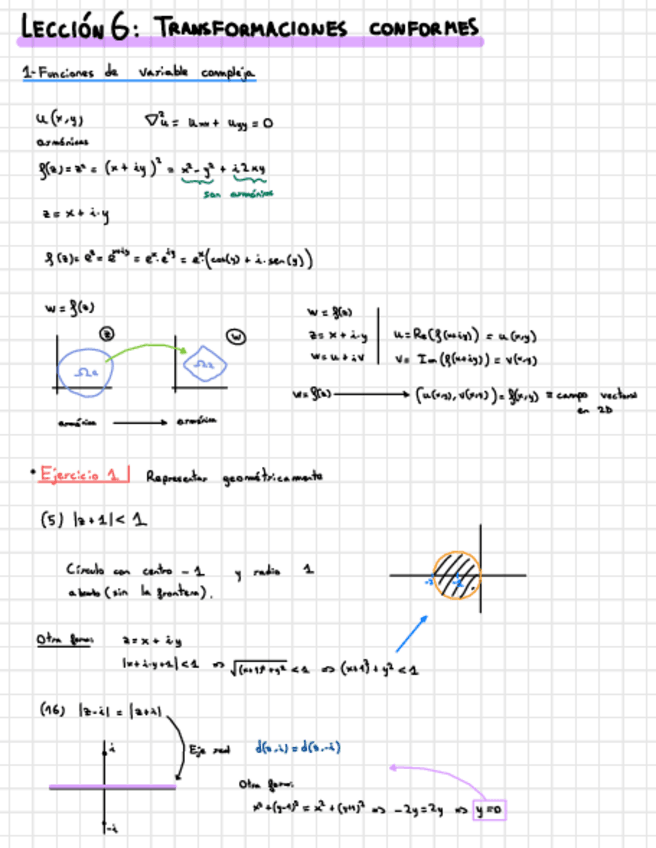 LECCIÓN 6: TRANSFORMACIONES CONFORMES
1-Funciones de variable compleja
u(x,y) ∇²u = uxx + uyy = 0
armónicas
f(z) = z² = (x + iy)² = x² - y² + i2xy
son armónicas
z = x + i·y
f(z) = e^z = e^(x+iy) = e^x·e^(iy) = e^x(cos(y) + i·sen(y))
w = f(z)
z w
armónica → armónica
w = f(z)
z = x + i·y u = Re(f(x+iy)) = u(x,y)
w = u + iv v = Im(f(x+iy)) = v(x,y)
w = f(z) → (u(x,y), v(x,y)) = f(x,y) ≡ campo vectorial
en 2D
• Ejercicio 1 | Representar geométricamente
(5) |z+1| < 1
Círculo con centro -1 y radio 1
abierto (sin la frontera).
-2 -1
Otra forma: z = x + iy
|x+i·y+1| < 1 ⇒ √((x+1)²+y²) < 1 ⇒ (x+1)² + y² < 1
(16) |z-i| = |z+i|
i Eje real d(z,i) = d(z,-i)
-i
Otra forma:
x² + (y-1)² = x² + (y+1)² ⇒ -2y = 2y ⇒ y = 0